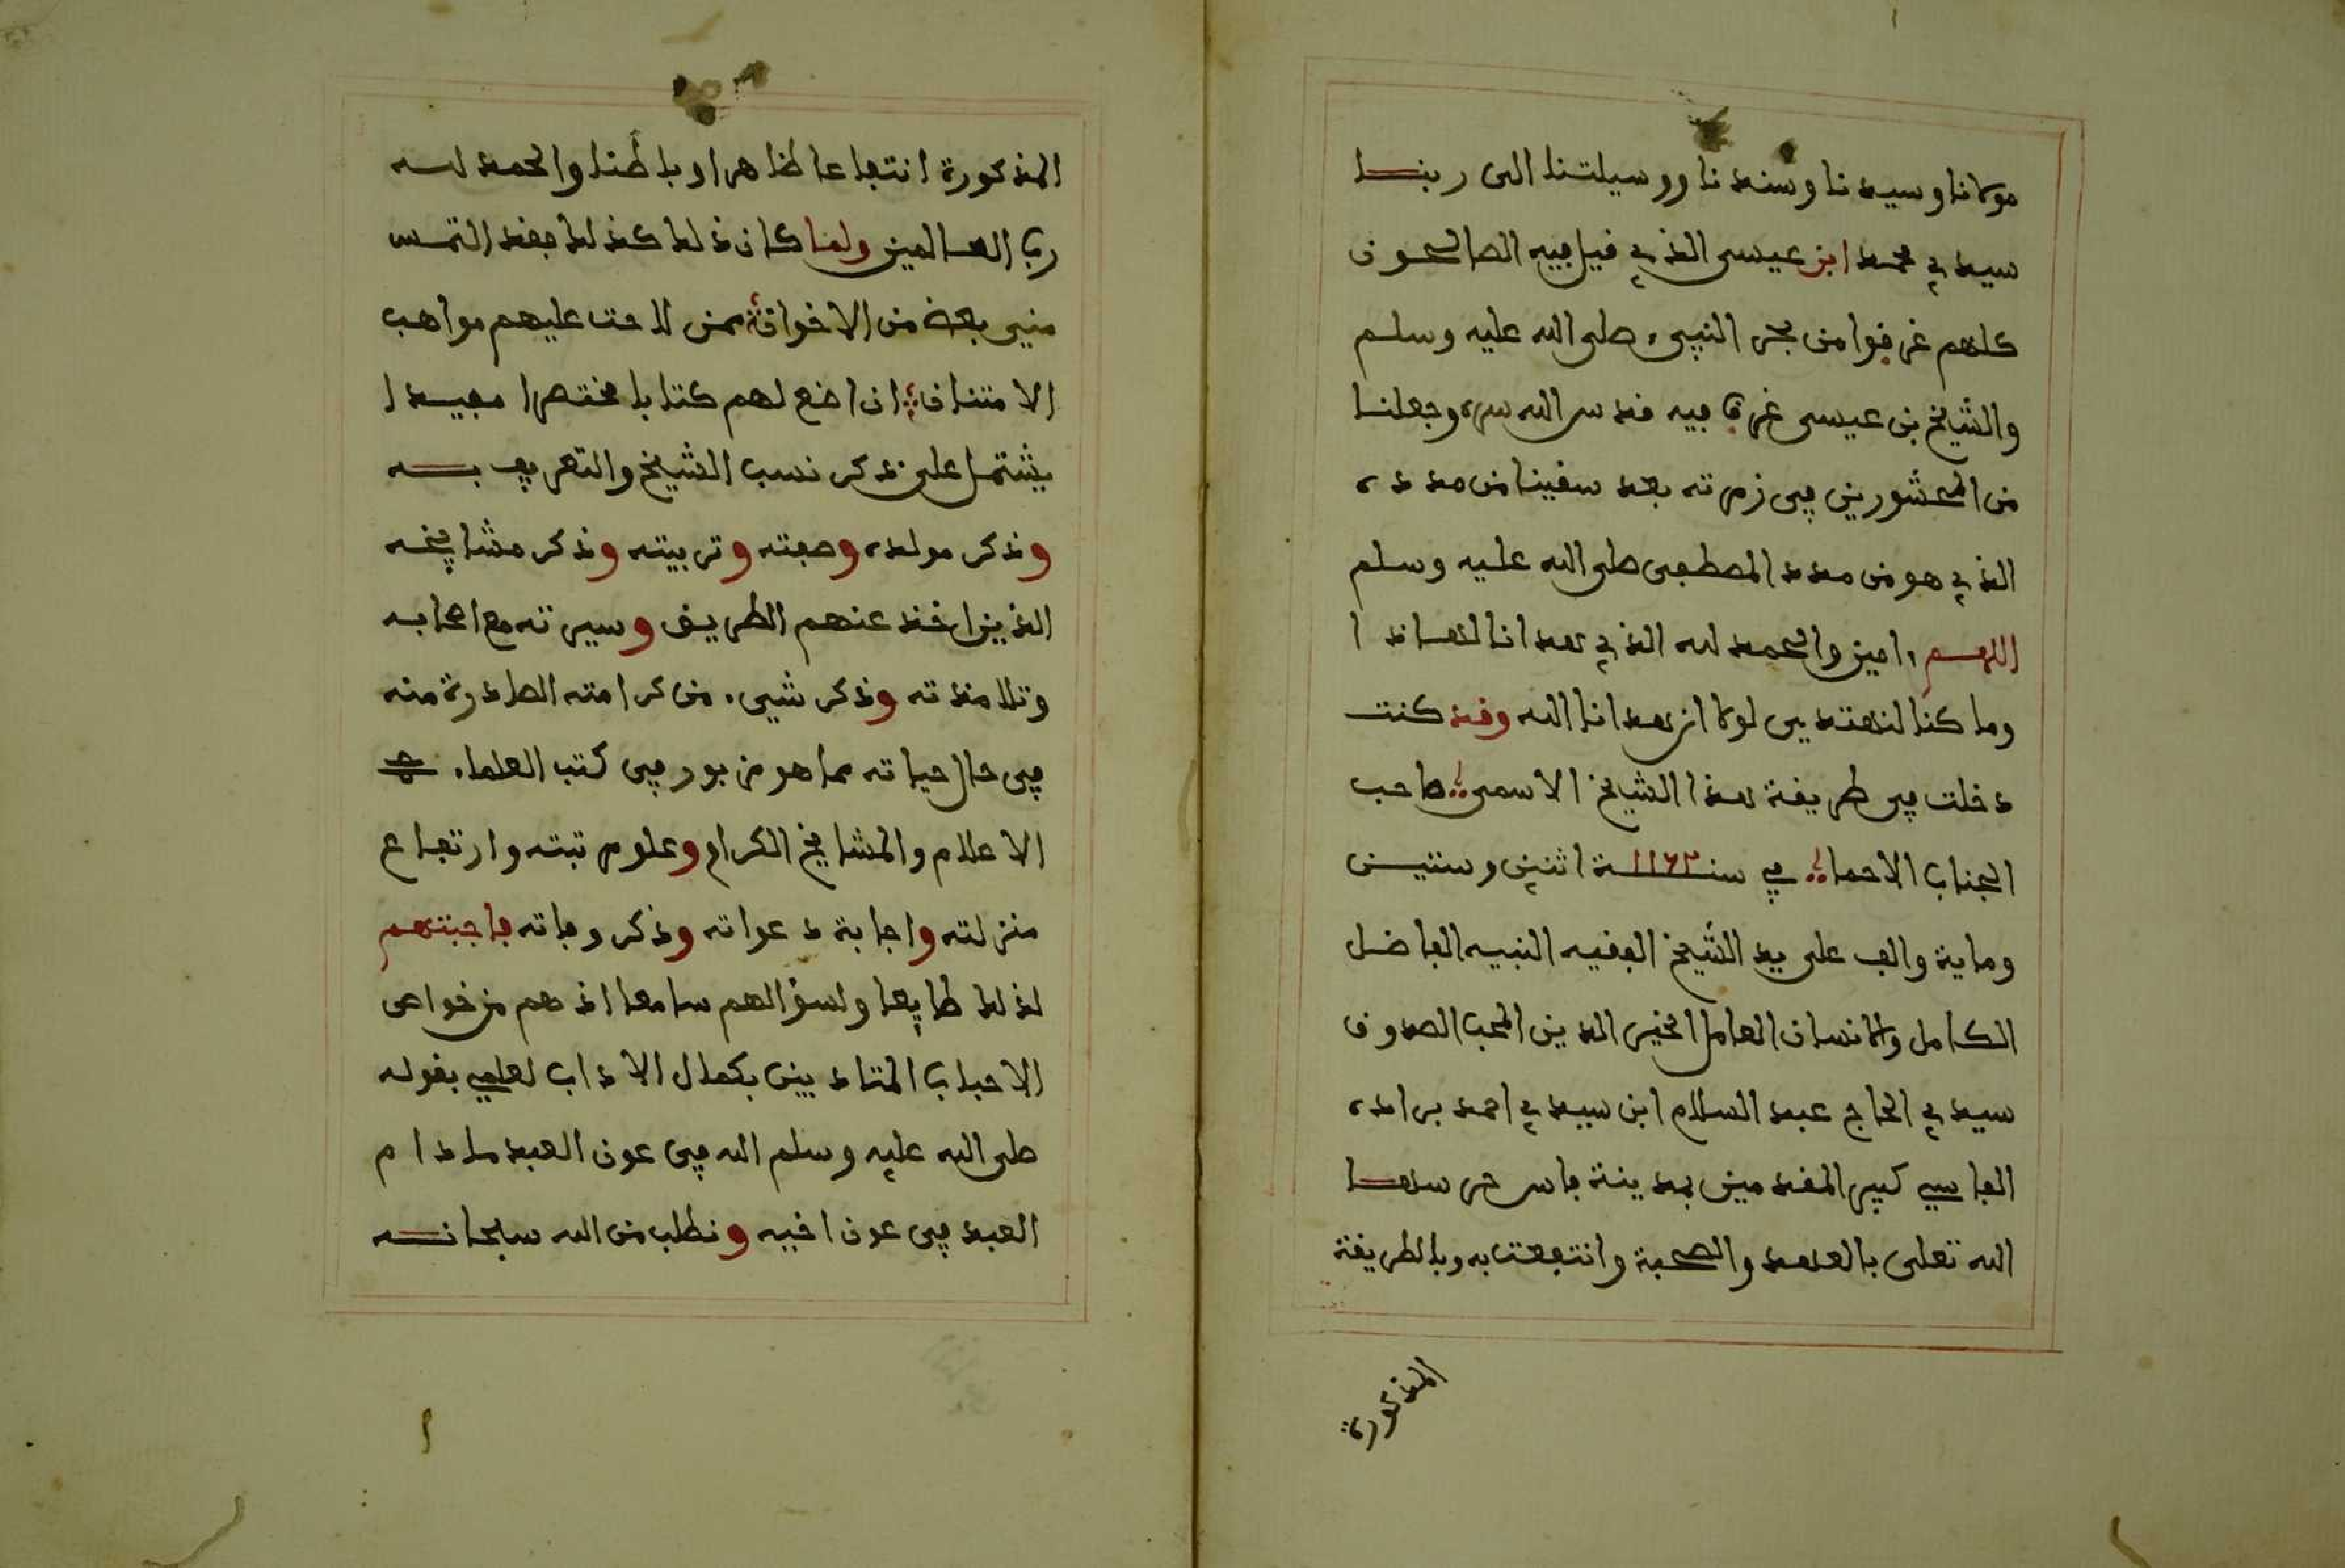 مولانا وسيدنا وسندنا ووسيلتنا الى ربنا
سيدي محمد ابن عيسى الذي قيل فيه الصالحون
كلهم غرفوا من بحر النبيء صلى الله عليه وسلم
والشيخ بن عيسى غرق فيه قدس الله سره وجعلنا
من المحشورين في زمرته بعد سقينا من مدده
الذي هو من مدد المصطفى صلى الله عليه وسلم
اللهم ءامين والحمد لله الذي هدانا لهاذا
وما كنا لنهتدي لولا ان هدانا الله وقد كنت
دخلت في طريقة هذا الشيخ الاسمى صاحب
الجناب الاحما في سنة ١١٦٢ اثنين وستين
وماية والف على يد الشيخ الفقيه النبيه الفاضل
الكامل والانسان العامل الخير الدين المحب الصدوق
سيدي الحاج عبد السلام ابن سيدي احمد براده
الفاسي كبير المقدمين بمدينة فاس حرسها
الله تعلى بالعهد والصحبة وانتفعت به وبالطريقة
المذكورة
المذكورة انتفاعا ظاهرا وباطنا والحمد لله
رب العالمين ولما كان ذلك كذلك فقد التمس
مني بعض من الاخوان ممن لاحت عليهم مواهب
الامتنان ان اضع لهم كتابا مختصرا مفيدا
يشتمل على ذكر نسب الشيخ والتعريف به
وذكر مولده وصفته وتربيته وذكر مشايخه
الذين اخذ عنهم الطريق وسيرته مع اصحابه
وتلامذته وذكر شيء من كرامته الصادرة منه
في حال حياته مما هو مزبور في كتب العلماء
الاعلام والمشايخ الكرام وعلو مرتبته وارتفاع
منزلته واجابة دعواته وذكر وفاته فاجبتهم
لذلك طايعا ولسؤالهم سامعا اذ هم من خواص
الاحباب المتادبين بكمال الاداب لعلمي بقوله
صلى الله عليه وسلم الله في عون العبد مادام
العبد في عون اخيه ونطلب من الله سبحانه